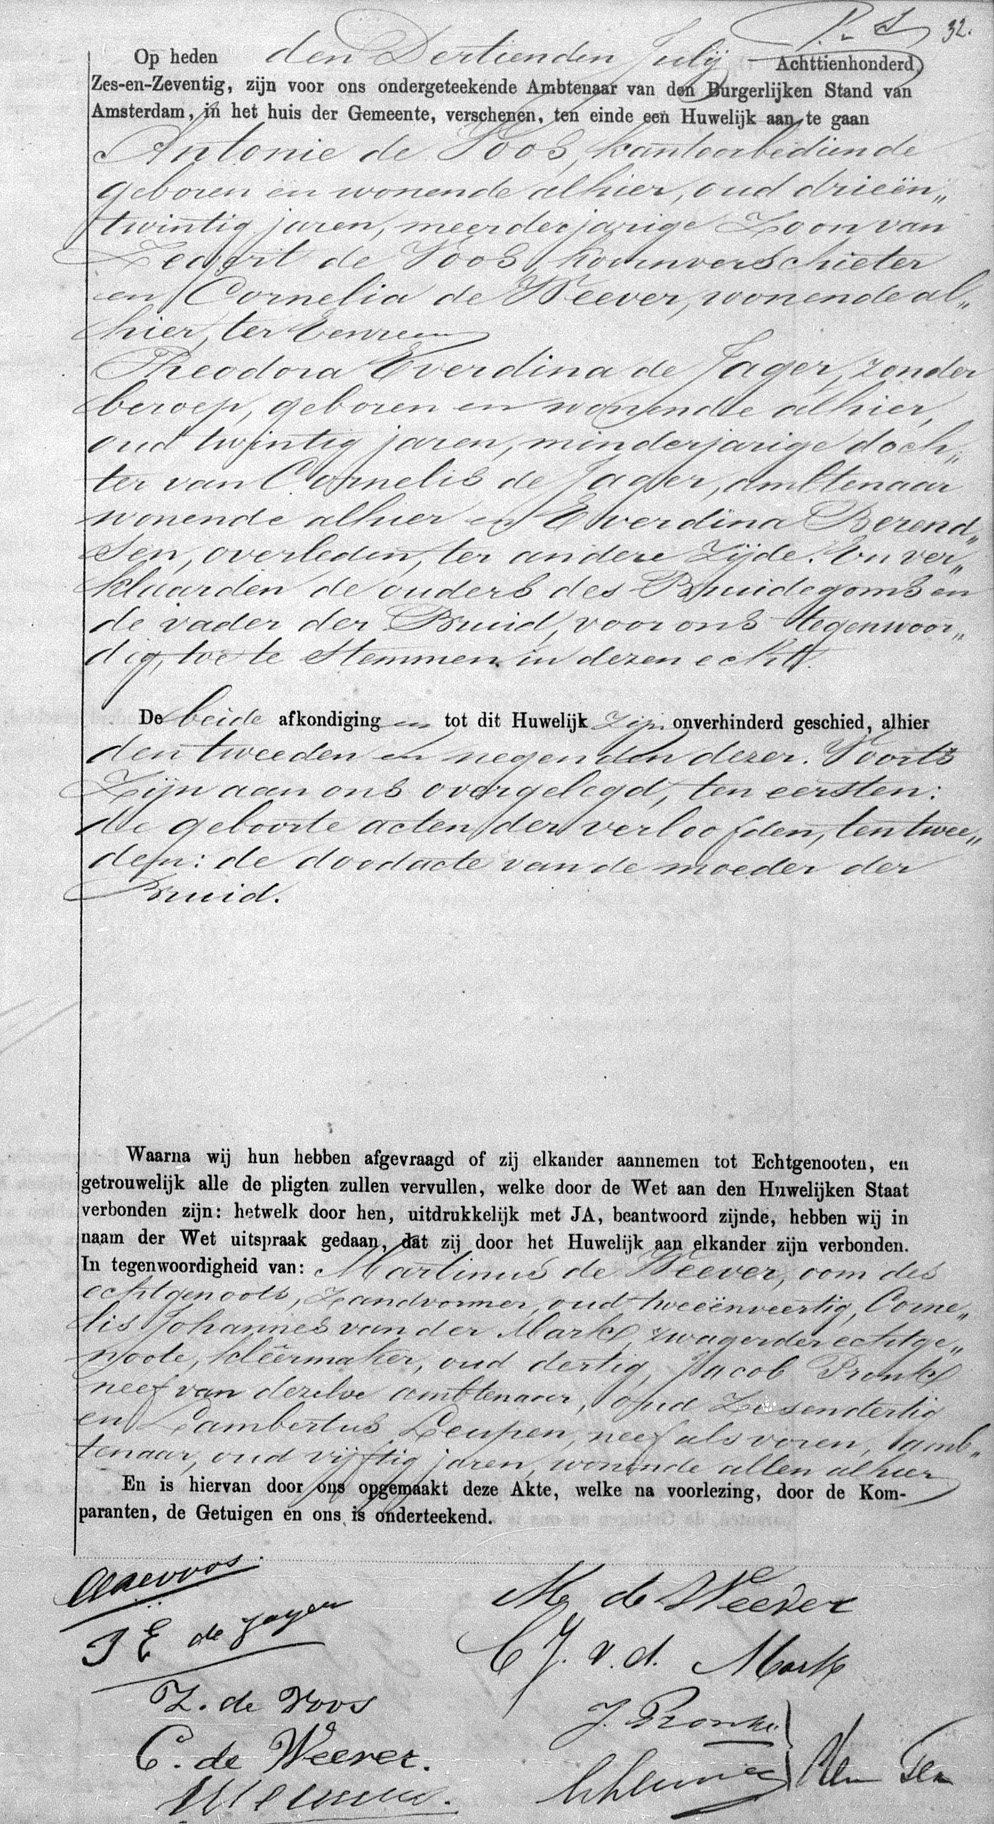 32.
Op heden den Dertienden Julij Achttienhonderd
Zes-en-Zeventig, zijn voor ons ondergeteekende Ambtenaar van den Burgerlijken Stand van
Amsterdam, in het huis der Gemeente, verschenen, ten einde een Huwelijk aan te gaan
Antonie de Voos, kantoorbediende
geboren en wonende alhier, oud drieën„
twintig jaren, meerderjarige Zoon van
Zegert de Voos, koornverschieter
en Cornelia de Weever, wonende al„
hier, ter Eenre en
Theodora Everdina de Jager, zonder
beroep, geboren en wonende alhier,
oud twintig jaren, minderjarige doch„
ter van Cornelis de Jager, ambtenaar
wonende alhier en Everdina Berend„
sen, overleden, ter andere Zijde. En ver„
klaarden de ouders des Bruidegoms en
de vader der Bruid, voor ons tegenwoor„
dig, toe te stemmen in dezen echt.
De beide afkondiging en tot dit Huwelijk zijn onverhinderd geschied, alhier
den tweeden en negenden dezer. Voorts
Zijn aan ons overgelegd, ten eersten:
de geboorte acten der verloofden, ten twee„
den: de doodacte van de moeder der
Bruid.
Waarna wij hun hebben afgevraagd of zij elkander aannemen tot Echtgenooten, en
getrouwelijk alle de pligten zullen vervullen, welke door de Wet aan den Huwelijken Staat
verbonden zijn: hetwelk door hen, uitdrukkelijk met JA, beantwoord zijnde, hebben wij in
naam der Wet uitspraak gedaan, dat zij door het Huwelijk aan elkander zijn verbonden.
In tegenwoordigheid van: Martinus de Weever, oom des
echtgenoots, Zandvormer, oud tweeënveertig, Corne„
lis Johannes van der Mark, zwager der echtge„
noote, kleêrmaker, oud dertig, Jacob Pronk
neef van dezelve ambtenaar, oud Zesendertig
en Lambertus Leupen, neef als voren, amb„
tenaar, oud vijftig jaren, wonende allen alhier
En is hiervan door ons opgemaakt deze Akte, welke na voorlezing, door de Kom-
paranten, de Getuigen en ons is onderteekend.
A de Voos.
T E de Jager
Z. de Voos
C. de Weever.
M de Weever
C J. v. d. Mark
J. Pronk